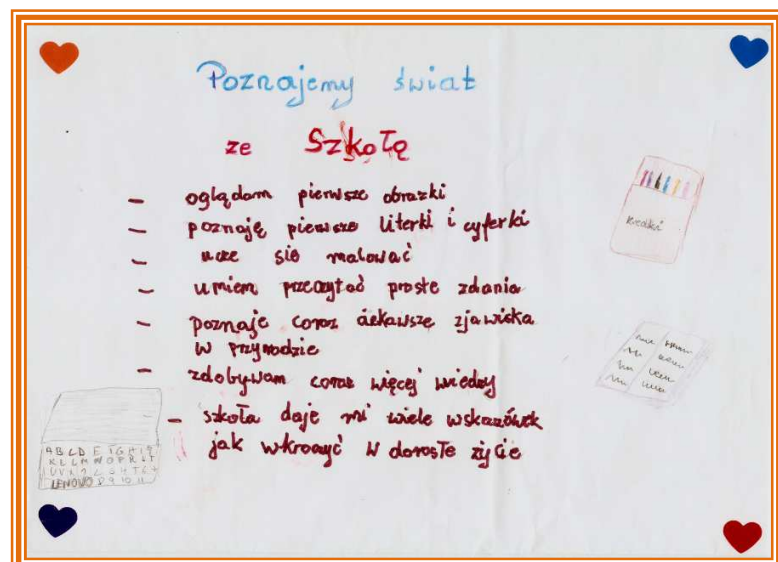 Poznajemy świat
ze Szkołę
- oglądam pierwsze obrazki
- poznaję pierwsze literki i cyferki
- ucze sie malować
- umiem przeczytać proste zdania
- poznaje coraz ciekawsze zjawiska
w przyrodzie
- zdobywam coraz więcej wiedzy
- szkoła daje mi wiele wskazówek
jak wkroczyć w dorosłe życie
kredki
LENOVO